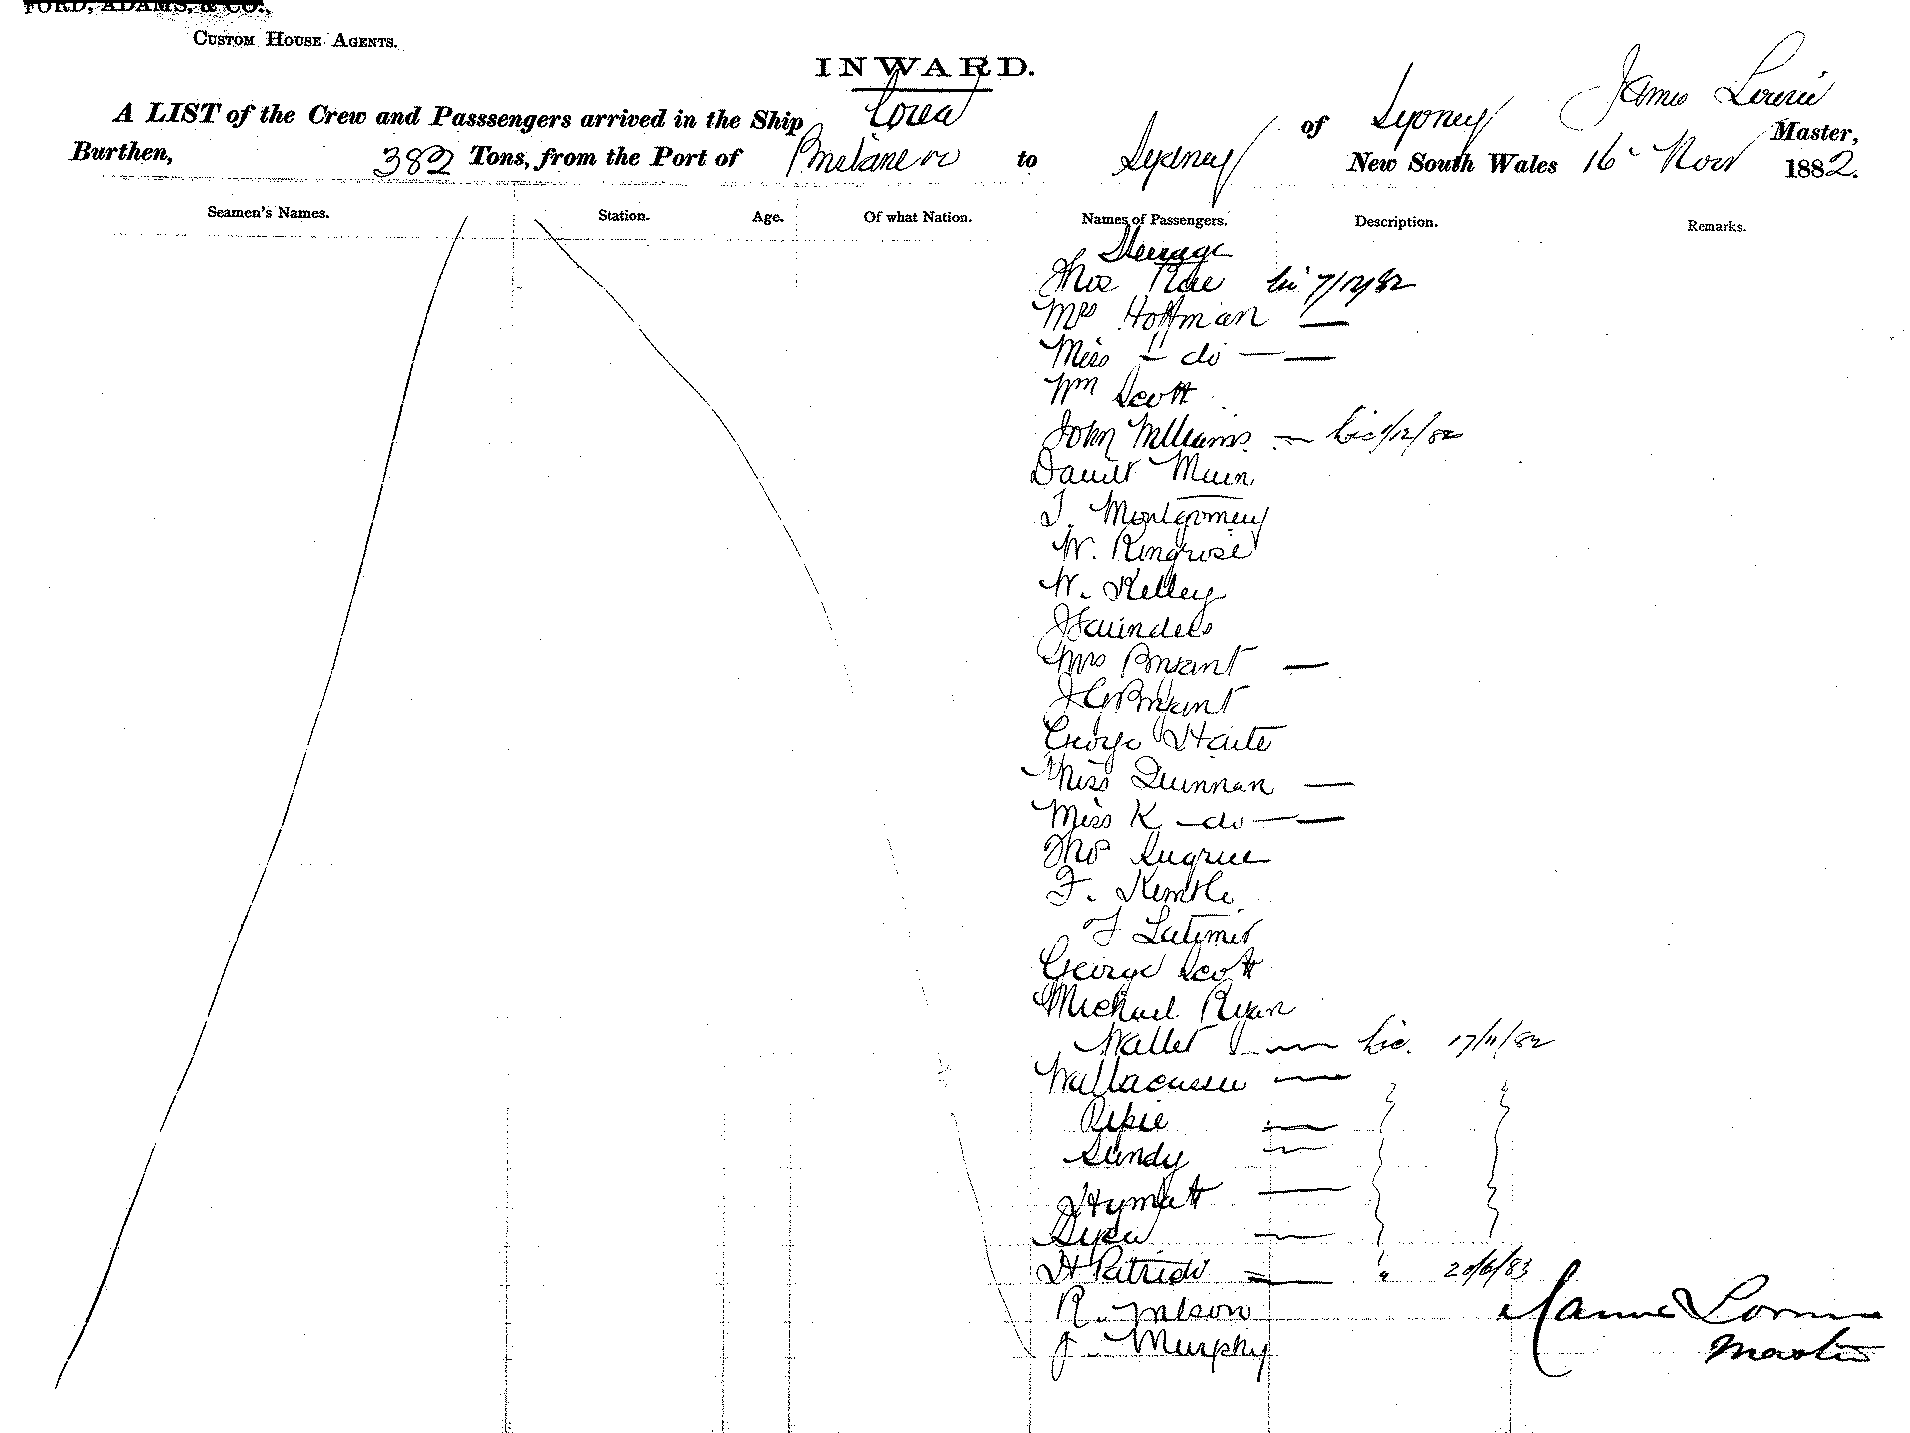 FORD, ADAMS, & CO.,
CUSTOM HOUSE AGENTS.
INWARD.
A LIST of the Crew and Passsengers arrived in the Ship Corea of Sydney James Lowrie Master,
Burthen, 382 Tons, from the Port of Brisbane to Sydney New South Wales 16 Nov 1882.
Seamen's Names. Station. Age. Of what Nation. Names of Passengers. Description. Remarks.
Steerage
Thos Rae lic 7/12/82
Mrs Hoffman —
Miss - do —
Wm Scott
John Williams — lic /12/82
David Muir
T. Montgomery
W. Ringrose
W. Kelley
J Saunders
Mrs Bryant —
J G Bryant
George Haite
Miss Quinnan —
Miss K — do —
Thos Sugrue
F. Kemble
F Latimer
George Scott
Michael Ryan
Waller — Lic. 17/11/82
—
—
Sundy —
—
—
H Patrick — " 20/6/83
R. Nelson
J. Murphy
James Lowrie
Master